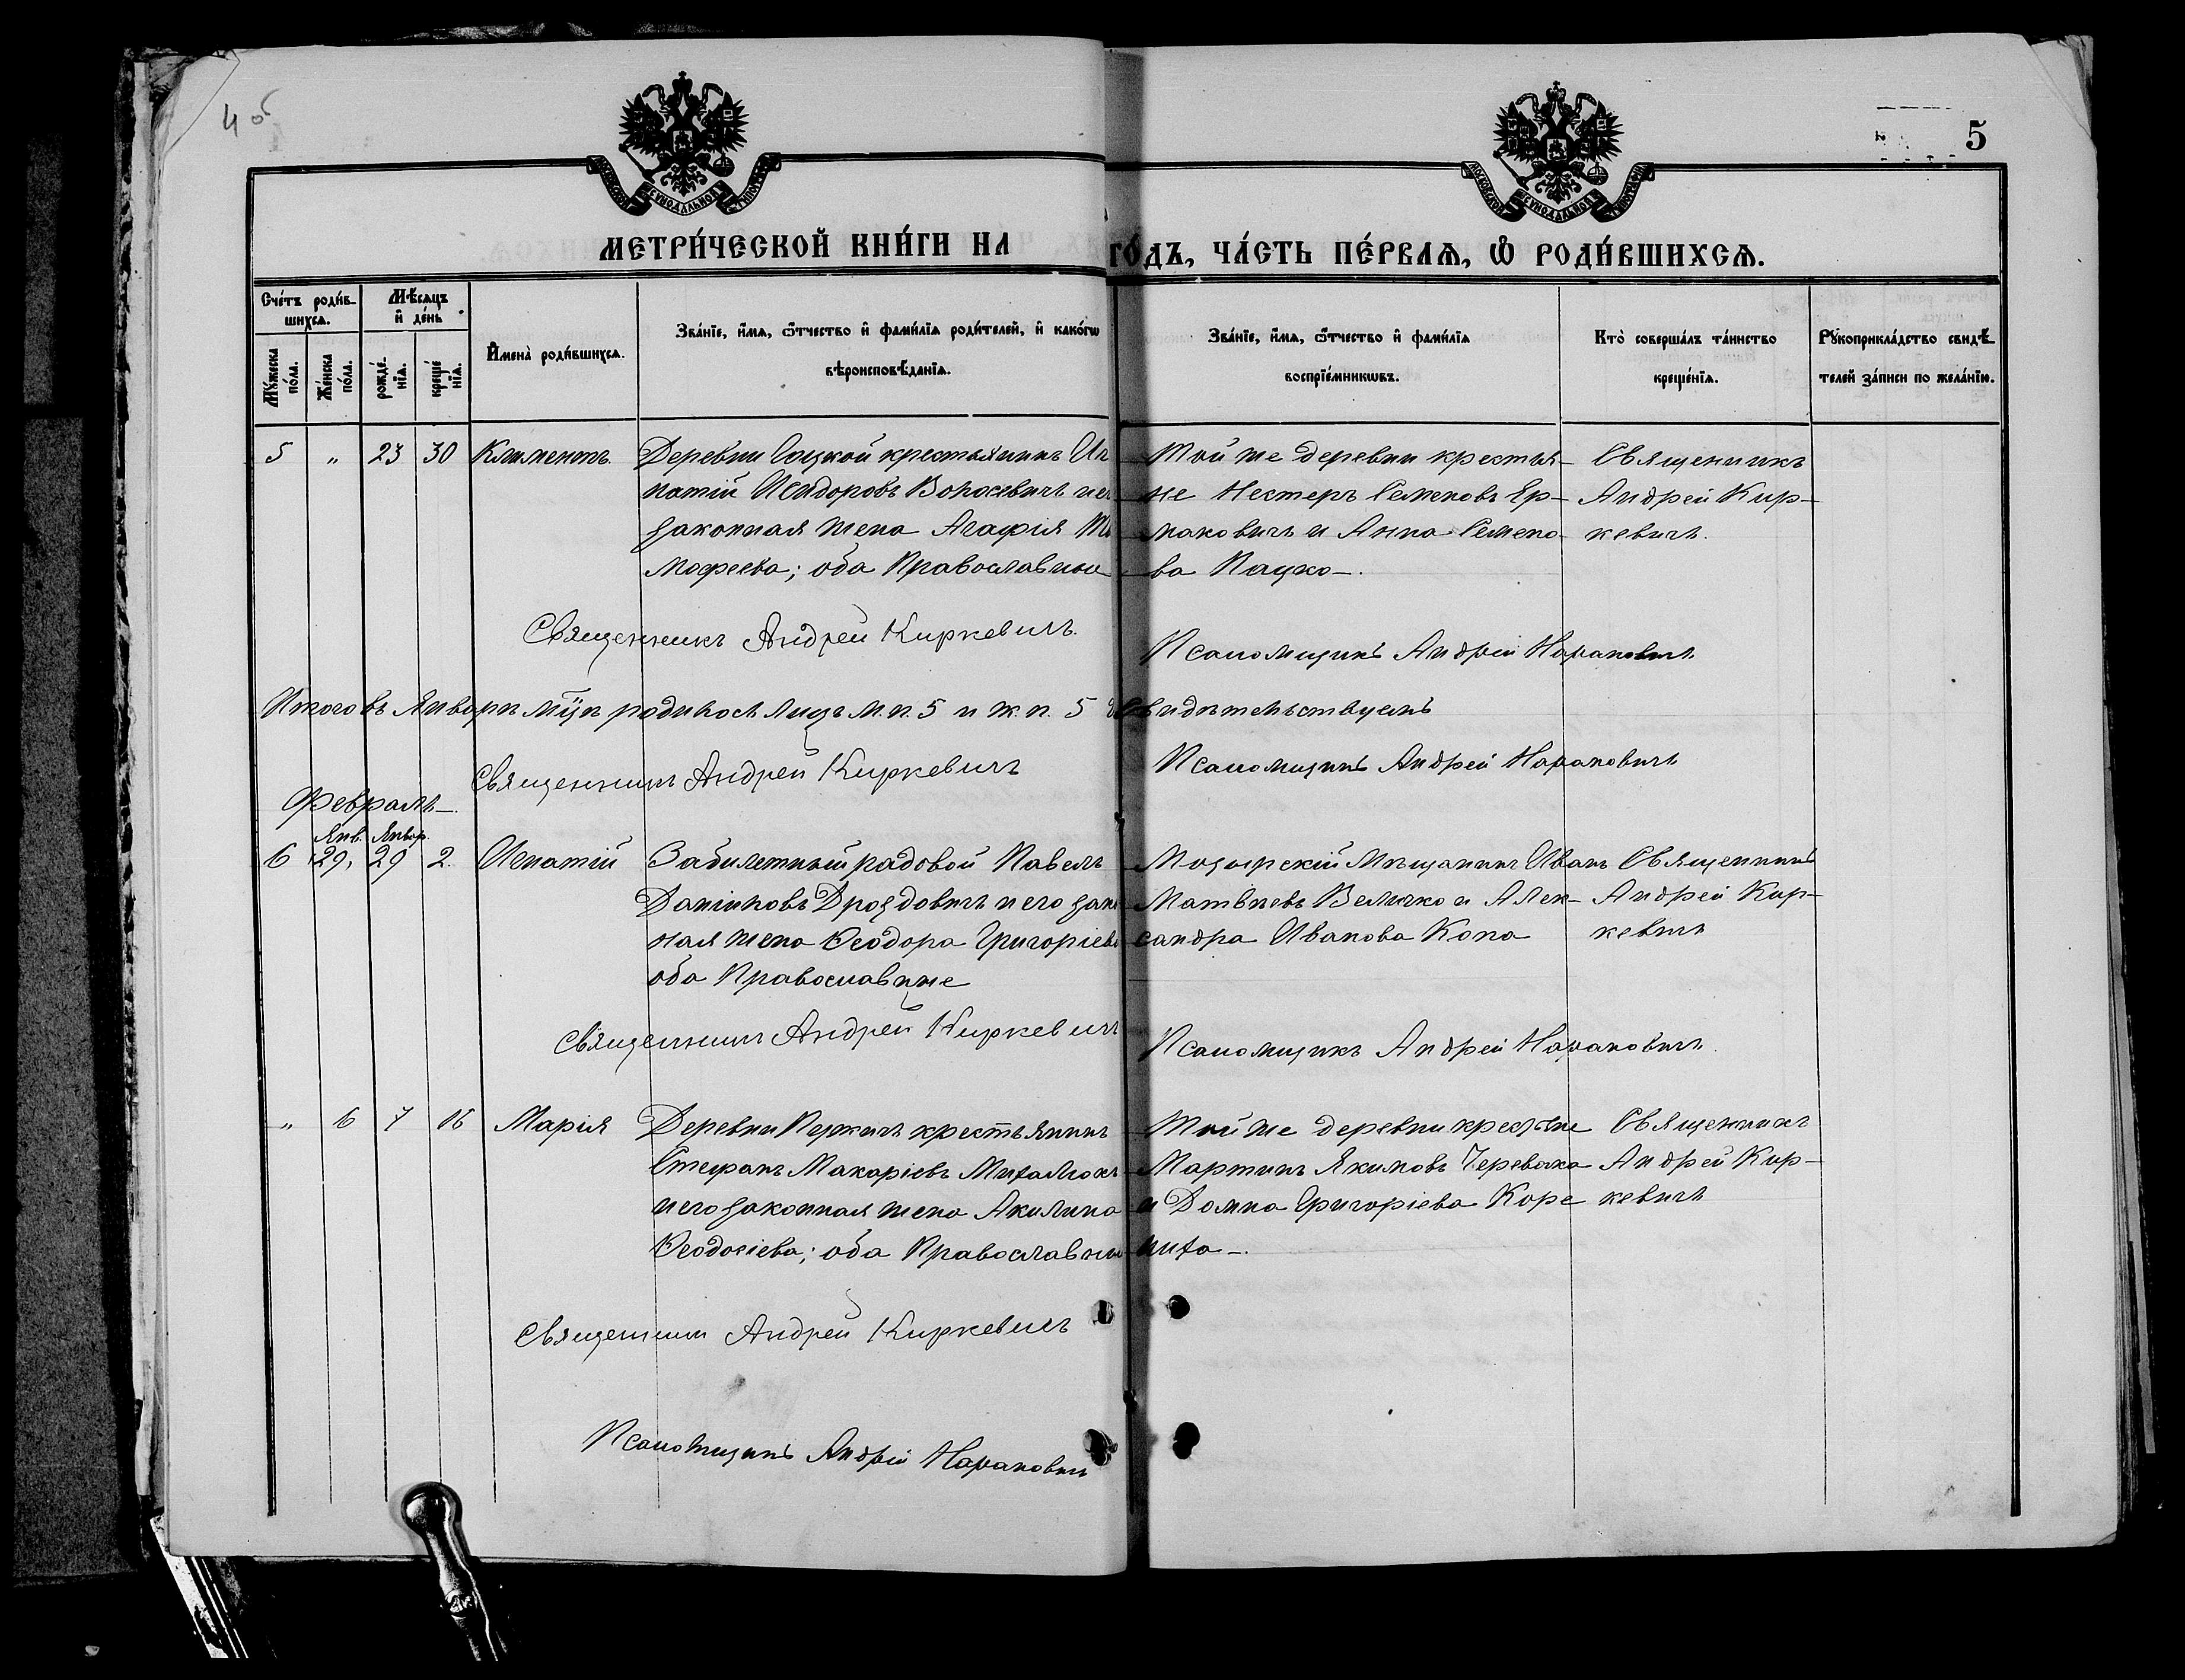 4 об
5
МЕТРИ́ЧЕСКОЙ КНИ́ГИ НА
ГО́ДЪ, ЧА́СТЬ ПЕ́РВАѦ, Ѡ҆ РОДИ́ВШИХСѦ.
Сче́тъ роди́в-
шихсѧ.
Мꙋ́жеска по́ла.
Же́нска по́ла.
Мѣ́сѧцъ
и҆ де́нь
рожде́-
нїѧ.
креще́
нїѧ.
И҆мена̀ роди́вшихсѧ.
Зва́нїе, и҆́мѧ, ѻ҆́тчество и҆ фами́лїѧ роди́телей, и҆ како́гѡ
вѣроисповѣ́данїѧ.
Зва́нїе, и҆́мѧ, ѻ҆́тчество и҆ фами́лїѧ
воспрїе́мникѡвъ.
Кто̀ соверша́лъ та́инство
креще́нїѧ.
Рꙋкоприкла́дство свидѣ́-
телей за́писи по жела́нїю.
5 " 23 30 Климентъ. Деревни крестьянинъ Иг
натій Исидоровъ и ег
законная жена Агафія Ти
мофеева; оба Православные
Той же деревни крестья-
не Нестеръ Семеновъ Ер-
маковичъ и Анна Семено
ва Пацко-.
Священникъ
Андрей Кир-
кевичъ.
Священникъ Андрей Киркевичъ.
Псаломщикъ Андрей Нарановичъ
Итого въ Январѣ мцѣ родилось лицъ м. п. 5 и ж. п. 5 свидѣтельствуемъ
Священникъ Андрей Киркевичъ
Псаломщикъ Андрей Нарановичъ
Февраль.
Янв. Январ.
6 29, 29 2. Игнатій Забилетный рядовой Павелъ
Даніиловъ Дроздовичъ и его закон
ная жена Ѳеодора Григоріева
оба Православные
Мозырскій Мѣщанинъ Иванъ
Матвѣевъ Величко и Алек-
сандра Иванова Копа
Священникъ
Андрей Кир-
кевичъ
Священникъ Андрей Киркевичъ
Псаломщикъ Андрей Нарановичъ.
" 6 7 16 Марія Деревни крестьянинъ
Стефанъ Макаріевъ Михалюкъ
и его законная жена Акилина
Ѳеодосіева; оба Православные
Той же деревни крестьяне
Мартинъ Якимовъ Черевака
и Домна Григоріева Коре
ниха-.
Священникъ
Андрей Кир-
кевичъ
Священникъ Андрей Киркевичъ
Псаломщикъ Андрей Нарановичъ